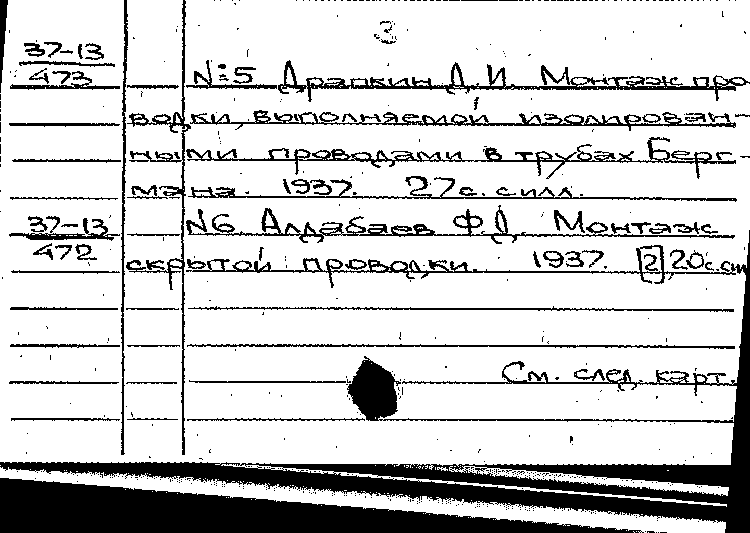 3
37-13 № 5 Драпкин Д. И. Монтаж про
473
водки, выполняемой изолирован-
ными проводами в трубах Берг-
мана. 1937. 27 с. с илл.
37-13 № 6 Алдабаев Ф. Д. Монтаж
472
скрытой проводки. 1937. [2], 20 с. с
См. след. карт.